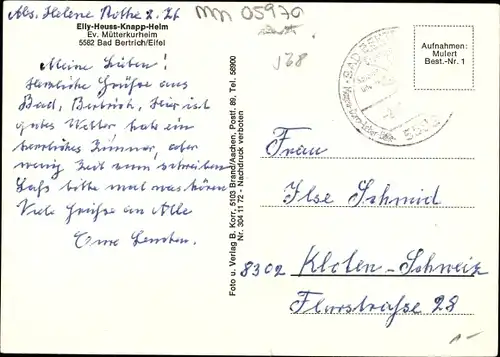 Abs. Helene Rothe z. Zt.
MM 05970
Elly-Heuss-Knapp-Heim
Ev. Mütterkurheim
5582 Bad Bertrich/Eifel
Meine Lieben!
Herzliche Grüße aus
Bad Bertrich, Hier ist
gutes Wetter, habe ein
herrliches Zimmer, aber
wenig Zeit zum schreiben
Laßt bitte mal was hören
Viele Grüße an Alle
Foto u. Verlag B. Korr, 5103 Brand/Aachen, Postf. 89, Tel. 58900
Nr. 304 11 72 - Nachdruck verboten
Aufnahmen:
Mulert
Best.-Nr. 1
BAD BERTRICH
Frau
Ilse Schmid
8302 Kloten-Schweiz
Flurstraße 28
A-